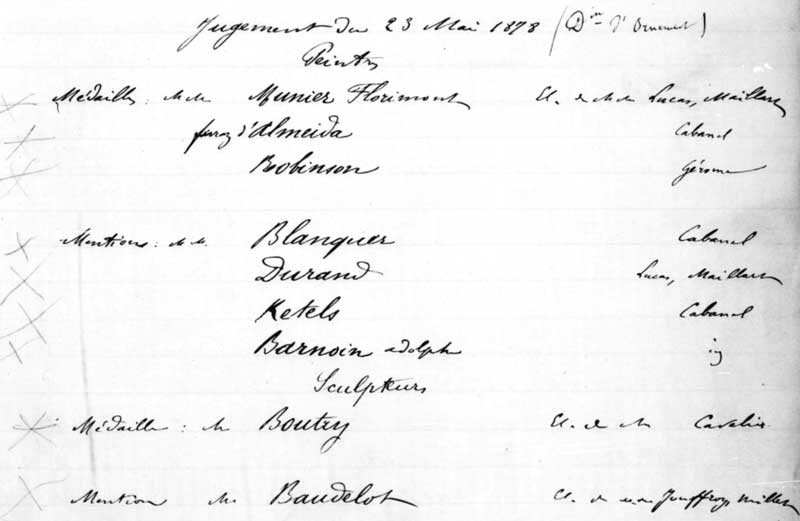 Jugement du 23 Mai 1878 (Din d'Ornement)
Peintres
Médailles: MM. Munier Florimont El. de MM. Lucas, Maillart
Ferraz d'Almeida Cabanel
Robinson Gérome
Mentions: MM. Blanquer Cabanel
Durand Lucas, Maillart
Ketels Cabanel
Barnoin adolphe ig
Sculpteurs
Médaille: M Boutry El. de M Cavelier
Mention M. Baudelot El. de Jouffroy, Millet